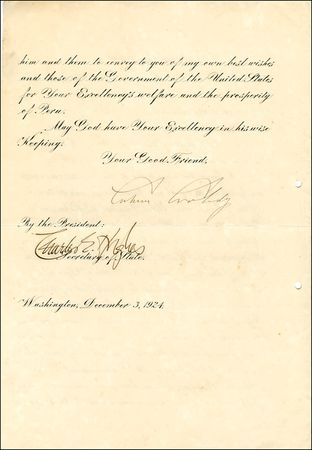 him and them to convey to you of my own best wishes
and those of the Government of the United States
for Your Excellency's welfare and the prosperity
of Peru.
May God have Your Excellency in his wise
Keeping.
Your Good Friend,
Calvin Coolidge
By the President:
Charles E. Hughes
Secretary of State.
Washington, December 3, 1924.